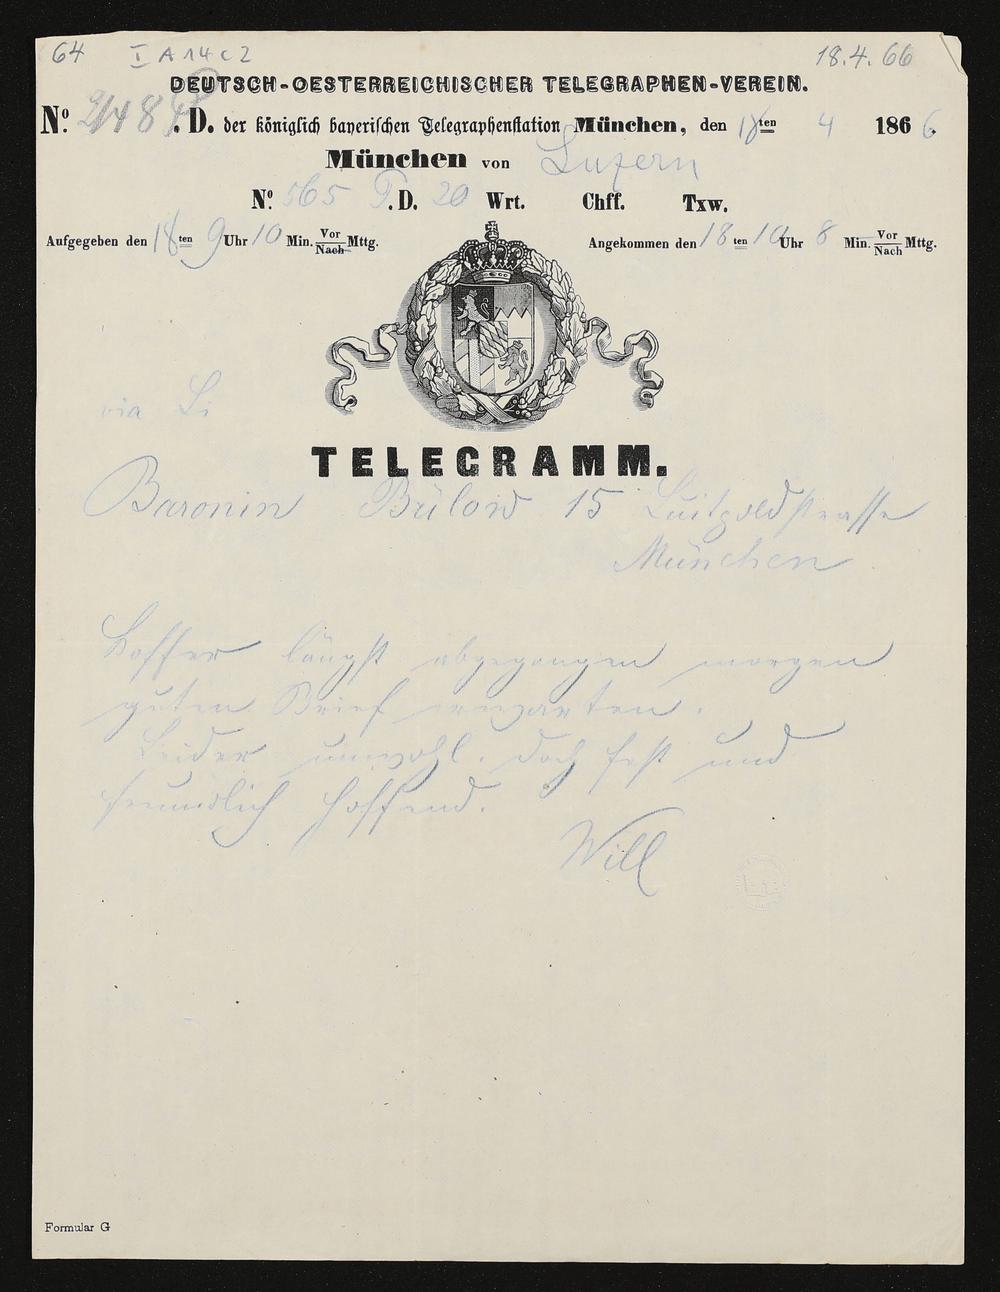 64 I A 14 c 2 18.4.66
DEUTSCH-OESTERREICHISCHER TELEGRAPHEN-VEREIN.
No. D. der königlich bayerischen Telegraphenstation München, den 18ten 4 1866.
München von Luzern
No. 565 P.D. 20 Wrt. Chff. Txw.
Aufgegeben den 18ten 9 Uhr 10 Min. Vor/Nach Mttg.
Angekommen den 18ten 10 Uhr 8 Min. Vor/Nach Mttg.
via Li
TELEGRAMM.
Baronin Bülow 15 Luitpoldstrasse
München
Koffer längst abgegangen morgen
guten Brief erwarten.
Leider unwohl. doch fest und
freundlich hoffend.
Will
Formular G